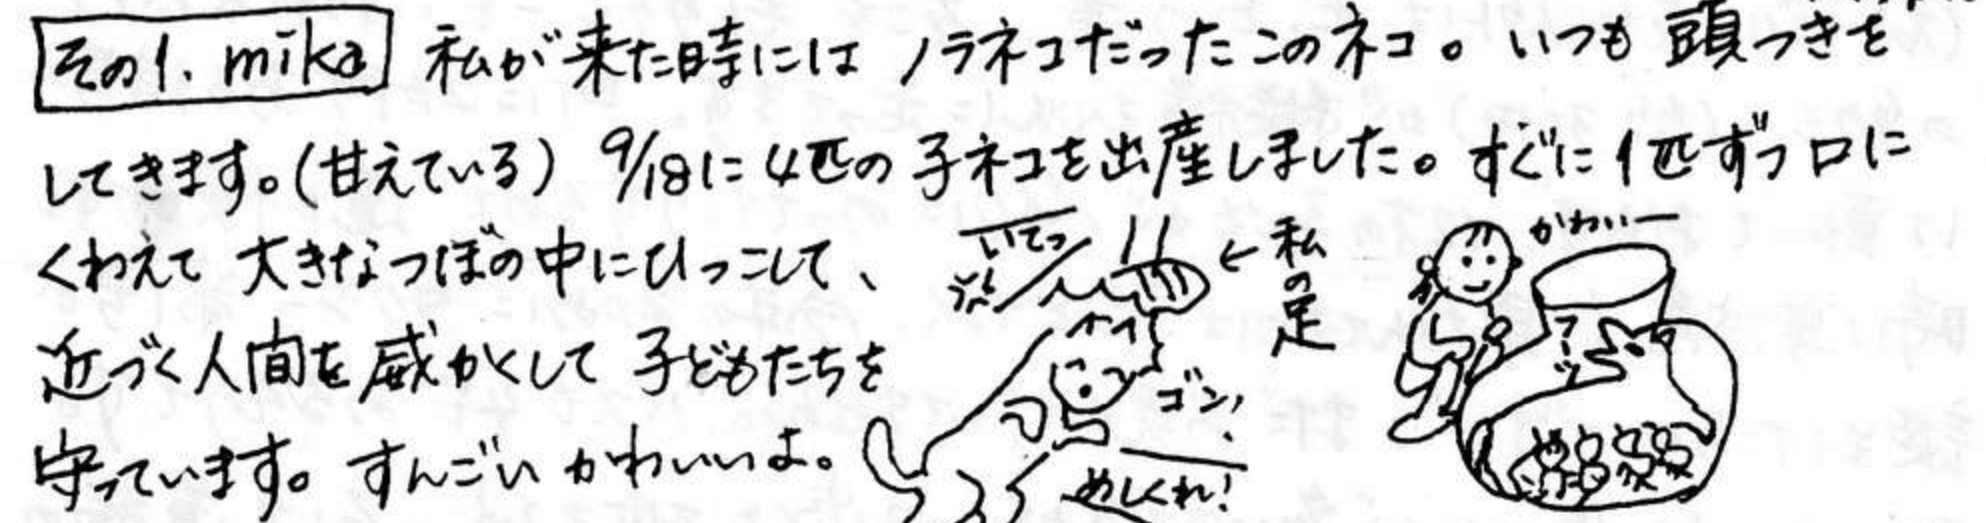 その1. mika 私が来た時にはノラネコだったこのネコ。いつも頭つきを
してきます。(甘えている) 9/18に4匹の子ネコを出産しました。すぐに1匹ずつ口に
くわえて大きなつぼの中にひっこして、
近づく人間を威かくして子どもたちを
守っています。すんごいかわいいよ。
いてっ
←私の足
ゴン!
めしくれ!
かわいー